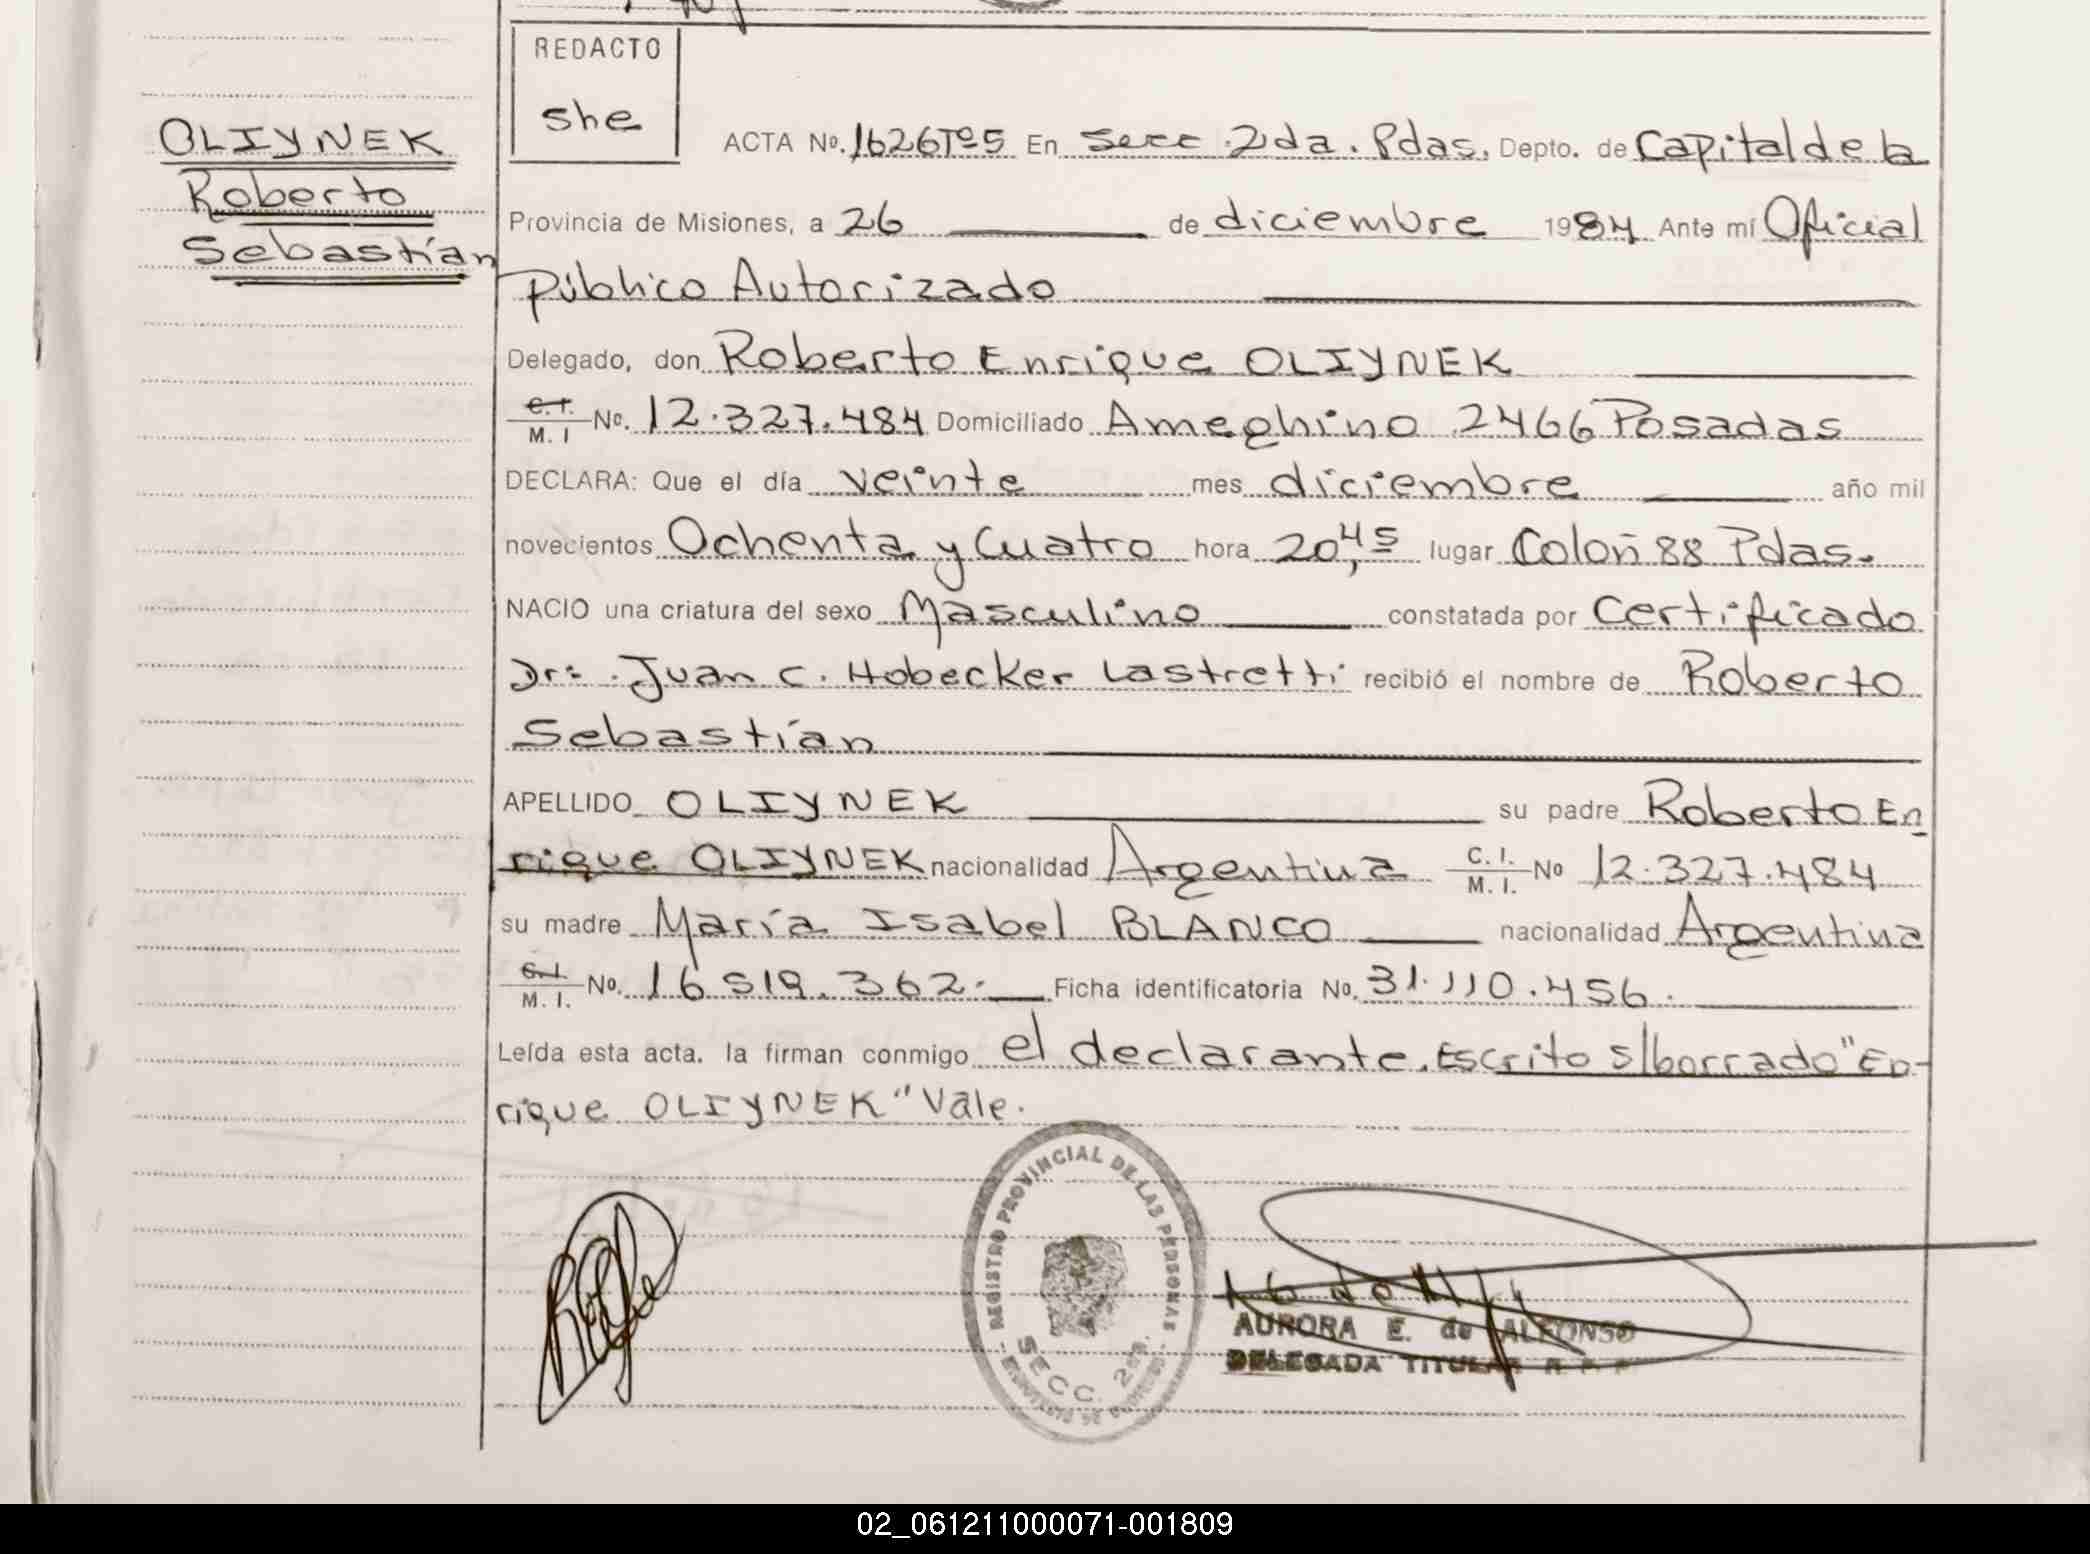 REDACTO
she
OLIYNEK
Roberto
Sebastián
ACTA No. 1626Tº5 En Secc 2da. Pdas. Depto. de Capital de la
Provincia de Misiones, a 26 de diciembre 1984 Ante mí Oficial
Público Autorizado
Delegado, don Roberto Enrique OLIYNEK
C.I. M. I No. 12.327.484 Domiciliado Ameghino 2466 Posadas
DECLARA: Que el día veinte mes diciembre año mil
novecientos Ochenta y Cuatro hora 20,45 lugar Colón 88 Pdas.
NACIO una criatura del sexo Masculino constatada por Certificado
Dr: Juan C. Hobecker Lastretti recibió el nombre de Roberto
Sebastián
APELLIDO OLIYNEK su padre Roberto En
rique OLIYNEK nacionalidad Argentina C. I. M. I. No 12.327.484
su madre María Isabel BLANCO nacionalidad Argentina
C.I. M. I. No. 16 519.362. Ficha identificatoria No. 31.110.456.
Leída esta acta. la firman conmigo el declarante. Escrito s/borrado "En-
rique OLIYNEK" Vale.
REGISTRO PROVINCIAL DE LAS PERSONAS
SECC. 2da.
AURORA E. de ALFONSO
DELEGADA TITULAR R. P. P.
02_061211000071-001809